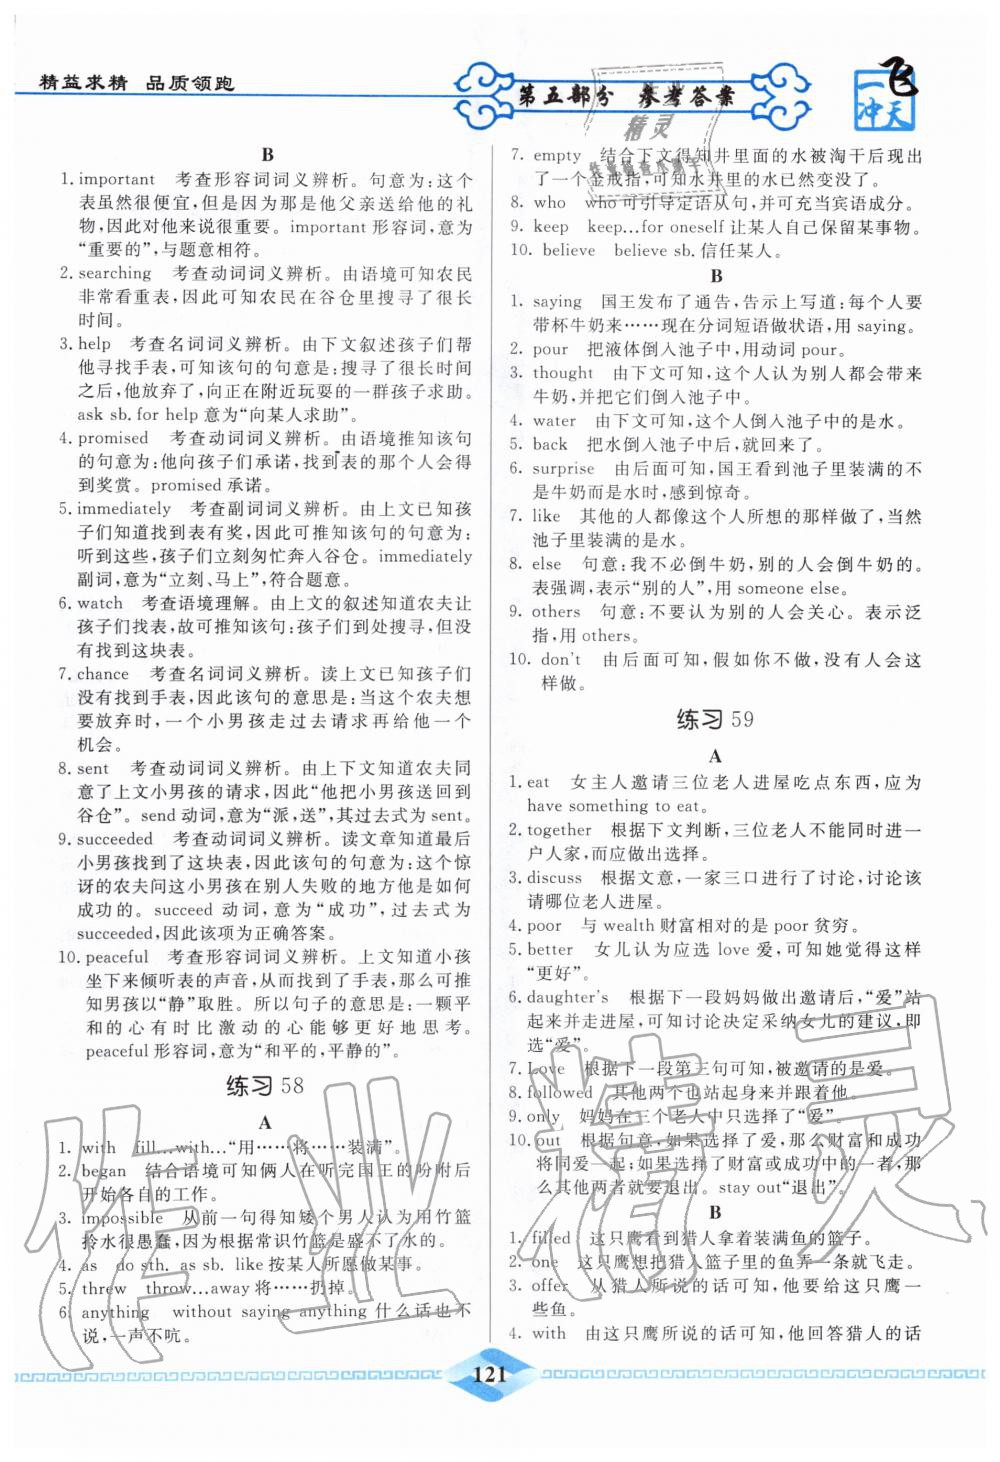 精益求精 品质领跑
第五部分 参考答案
一飞冲天
B
1. important 考查形容词词义辨析。句意为:这个
表虽然很便宜,但是因为那是他父亲送给他的礼
物,因此对他来说很重要。important 形容词,意为
“重要的”,与题意相符。
2. searching 考查动词词义辨析。由语境可知农民
非常看重表,因此可知农民在谷仓里搜寻了很长
时间。
3. help 考查名词词义辨析。由下文叙述孩子们帮
他寻找手表,可知该句的句意是:搜寻了很长时间
之后,他放弃了,向正在附近玩耍的一群孩子求助。
ask sb. for help 意为“向某人求助”。
4. promised 考查动词词义辨析。由语境推知该句
的句意为:他向孩子们承诺,找到表的那个人会得
到奖赏。promised 承诺。
5. immediately 考查副词词义辨析。由上文已知孩
子们知道找到表有奖,因此可推知该句的句意为:
听到这些,孩子们立刻匆忙奔入谷仓。immediately
副词,意为“立刻、马上”,符合题意。
6. watch 考查语境理解。由上文的叙述知道农夫让
孩子们找表,故可推知该句:孩子们到处搜寻,但没
有找到这块表。
7. chance 考查名词词义辨析。读上文已知孩子们
没有找到手表,因此该句的意思是:当这个农夫想
要放弃时,一个小男孩走过去请求再给他一个
机会。
8. sent 考查动词词义辨析。由上下文知道农夫同
意了上文小男孩的请求,因此“他把小男孩送回到
谷仓”。send 动词,意为“派,送”,其过去式为 sent。
9. succeeded 考查动词词义辨析。读文章知道最后
小男孩找到了这块表,因此该句的句意为:这个惊
讶的农夫问这个小男孩在别人失败的地方他是如何
成功的。succeed 动词,意为“成功”,过去式为
succeeded,因此该项为正确答案。
10. peaceful 考查形容词词义辨析。上文知道小孩
坐下来倾听表的声音,从而找到了手表,那么可推
知男孩以“静”取胜。所以句子的意思是:一颗平
和的心有时比激动的小能够更好地思考。
peaceful 形容词,意为“和平的,平静的”。
练习 58
A
1. with fill…with…“用……将……装满”。
2. began 结合语境可知俩人在听完国王的吩咐后
开始各自的工作。
3. impossible 从前一句得知矮个男人认为用竹篮
拎水很愚蠢,因为根据常识竹篮是盛不了水的。
4. as do sth. as sb. like按某人所愿做某事。
5. threw throw…away将……扔掉。
6. anything without saying anything 什么话也不
说,一声不吭。
7. empty 结合下文得知井里面的水被淘干后现出
了一个金戒指,可知水井里的水已然变没了。
8. who who可引导定语从句,并可充当宾语成分。
9. keep keep…for oneself让某人自己保留某事物。
10. believe believe sb.信任某人。
B
1. saying 国王发布了通告,告示上写道:每个人要
带杯牛奶来……现在分词短语做状语,用 saying。
2. pour 把液体倒入池子中,用动词 pour。
3. thought 由下文可知,这个人认为别人都会带来
牛奶,并把它们倒入池子中。
4. water 由下文可知,这个人倒入池子中的是水。
5. back 把水倒入池子中后,就回来了。
6. surprise 由后面可知,国王看到池子里装满的不
是牛奶而是水时,感到惊奇。
7. like 其他的人都像这个人所想的那样做了,当然
池子里装满的是水。
8. else 句意:我不必倒牛奶,别的人会倒牛奶的。
表强调,表示“别的人”,用 someone else。
9. others 句意:不要认为别的人会关心。表示泛
指,用 others。
10. don't 由后面可知,假如你不做,没有人会这
样做。
练习 59
A
1. eat 女主人邀请三位老人进屋吃点东西,应为
have something to eat。
2. together 根据下文判断,三位老人不能同时进一
户人家,而应做出选择。
3. discuss 根据文意,一家三口进行了讨论,讨论该
请哪位老人进屋。
4. poor 与 wealth 财富相对的是 poor 贫穷。
5. better 女儿认为应选 love 爱,可知她觉得这样
“更好”。
6. daughter's 根据下一段妈妈做出邀请后,“爱”站
起来并走进屋,可知讨论决定采纳女儿的建议,即
选“爱”。
7. Love 根据下一段第三句可知,被邀请的是爱。
8. followed 其他两个也站起身来并跟着他。
9. only 妈妈在三个老人中只选择了“爱”。
10. out 根据句意,如果选择了爱,那么财富和成功
将同爱一起;如果选择了财富或成功中的一者,那
么其他两者就要退出。stay out“退出”。
B
1. filled 这只鹰看到猎人拿着装满鱼的篮子。
2. one 这只鹰想把猎人篮子里的鱼弄一条就飞走。
3. offer 从猎人所说的话可知,他要给这只鹰一
些鱼。
4. with 由这只鹰所说的话可知,他回答猎人的话
121
作业精灵